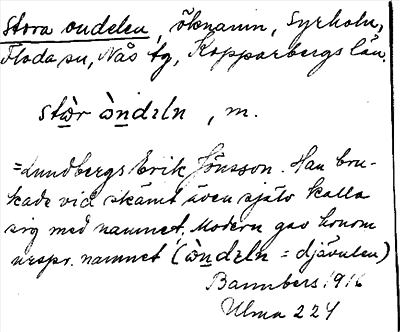 Stora ondelen, öknamn, Syrholn,
Floda sn, Nås tg, Kopparbergs län.
stæ̀r ò̱ndɛln, m.
= Lundbergs Erik Jönsson. Han bru-
kade vid skämt även själv kalla
sig med namnet; Modern gav honom
urspr. namnet (ò̱ndɛln = djävulen)
Bannbers 1916
Ulma 224